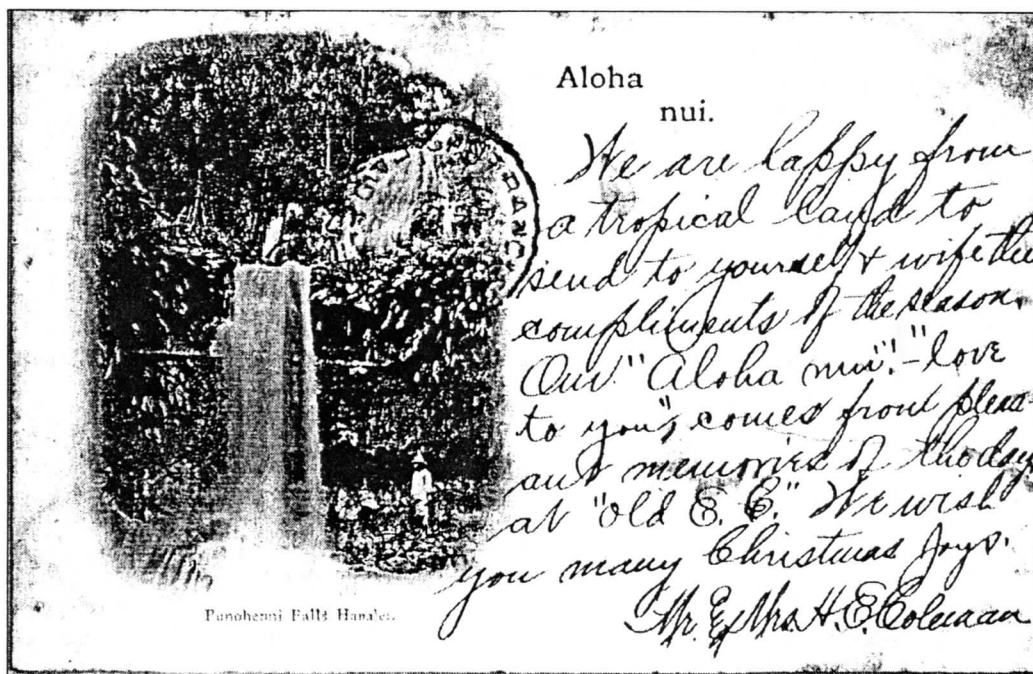 Aloha
nui.
We are happy from
a tropical land to
send to yourself & wife the
compliments of the season.
Our "Aloha nui"!-"love
to you", comes from pleas-
ant memories of the days
at "old E. E." We wish
you many Christmas Joys.
Mr. & Mrs. H. E. Coleman
Punohenni Falls Hanalei.